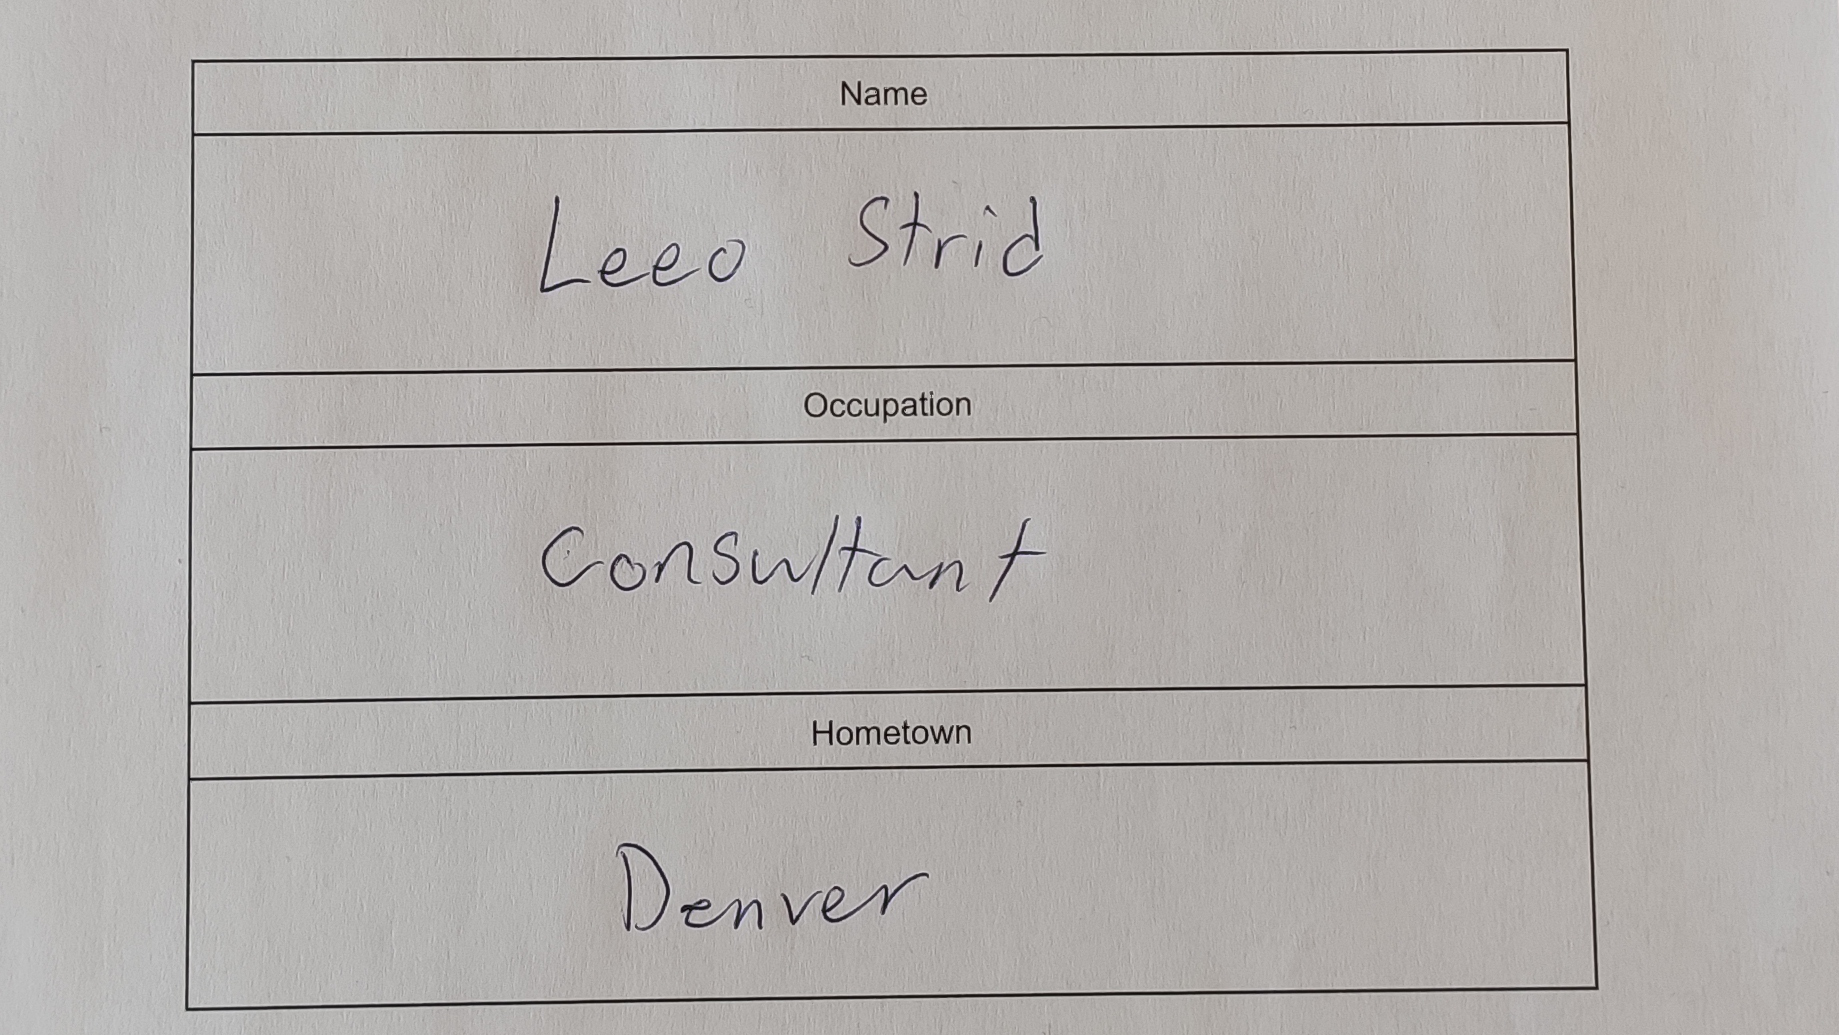 Name
Leeo Strid
Occupation
Consultant
Hometown
Denver